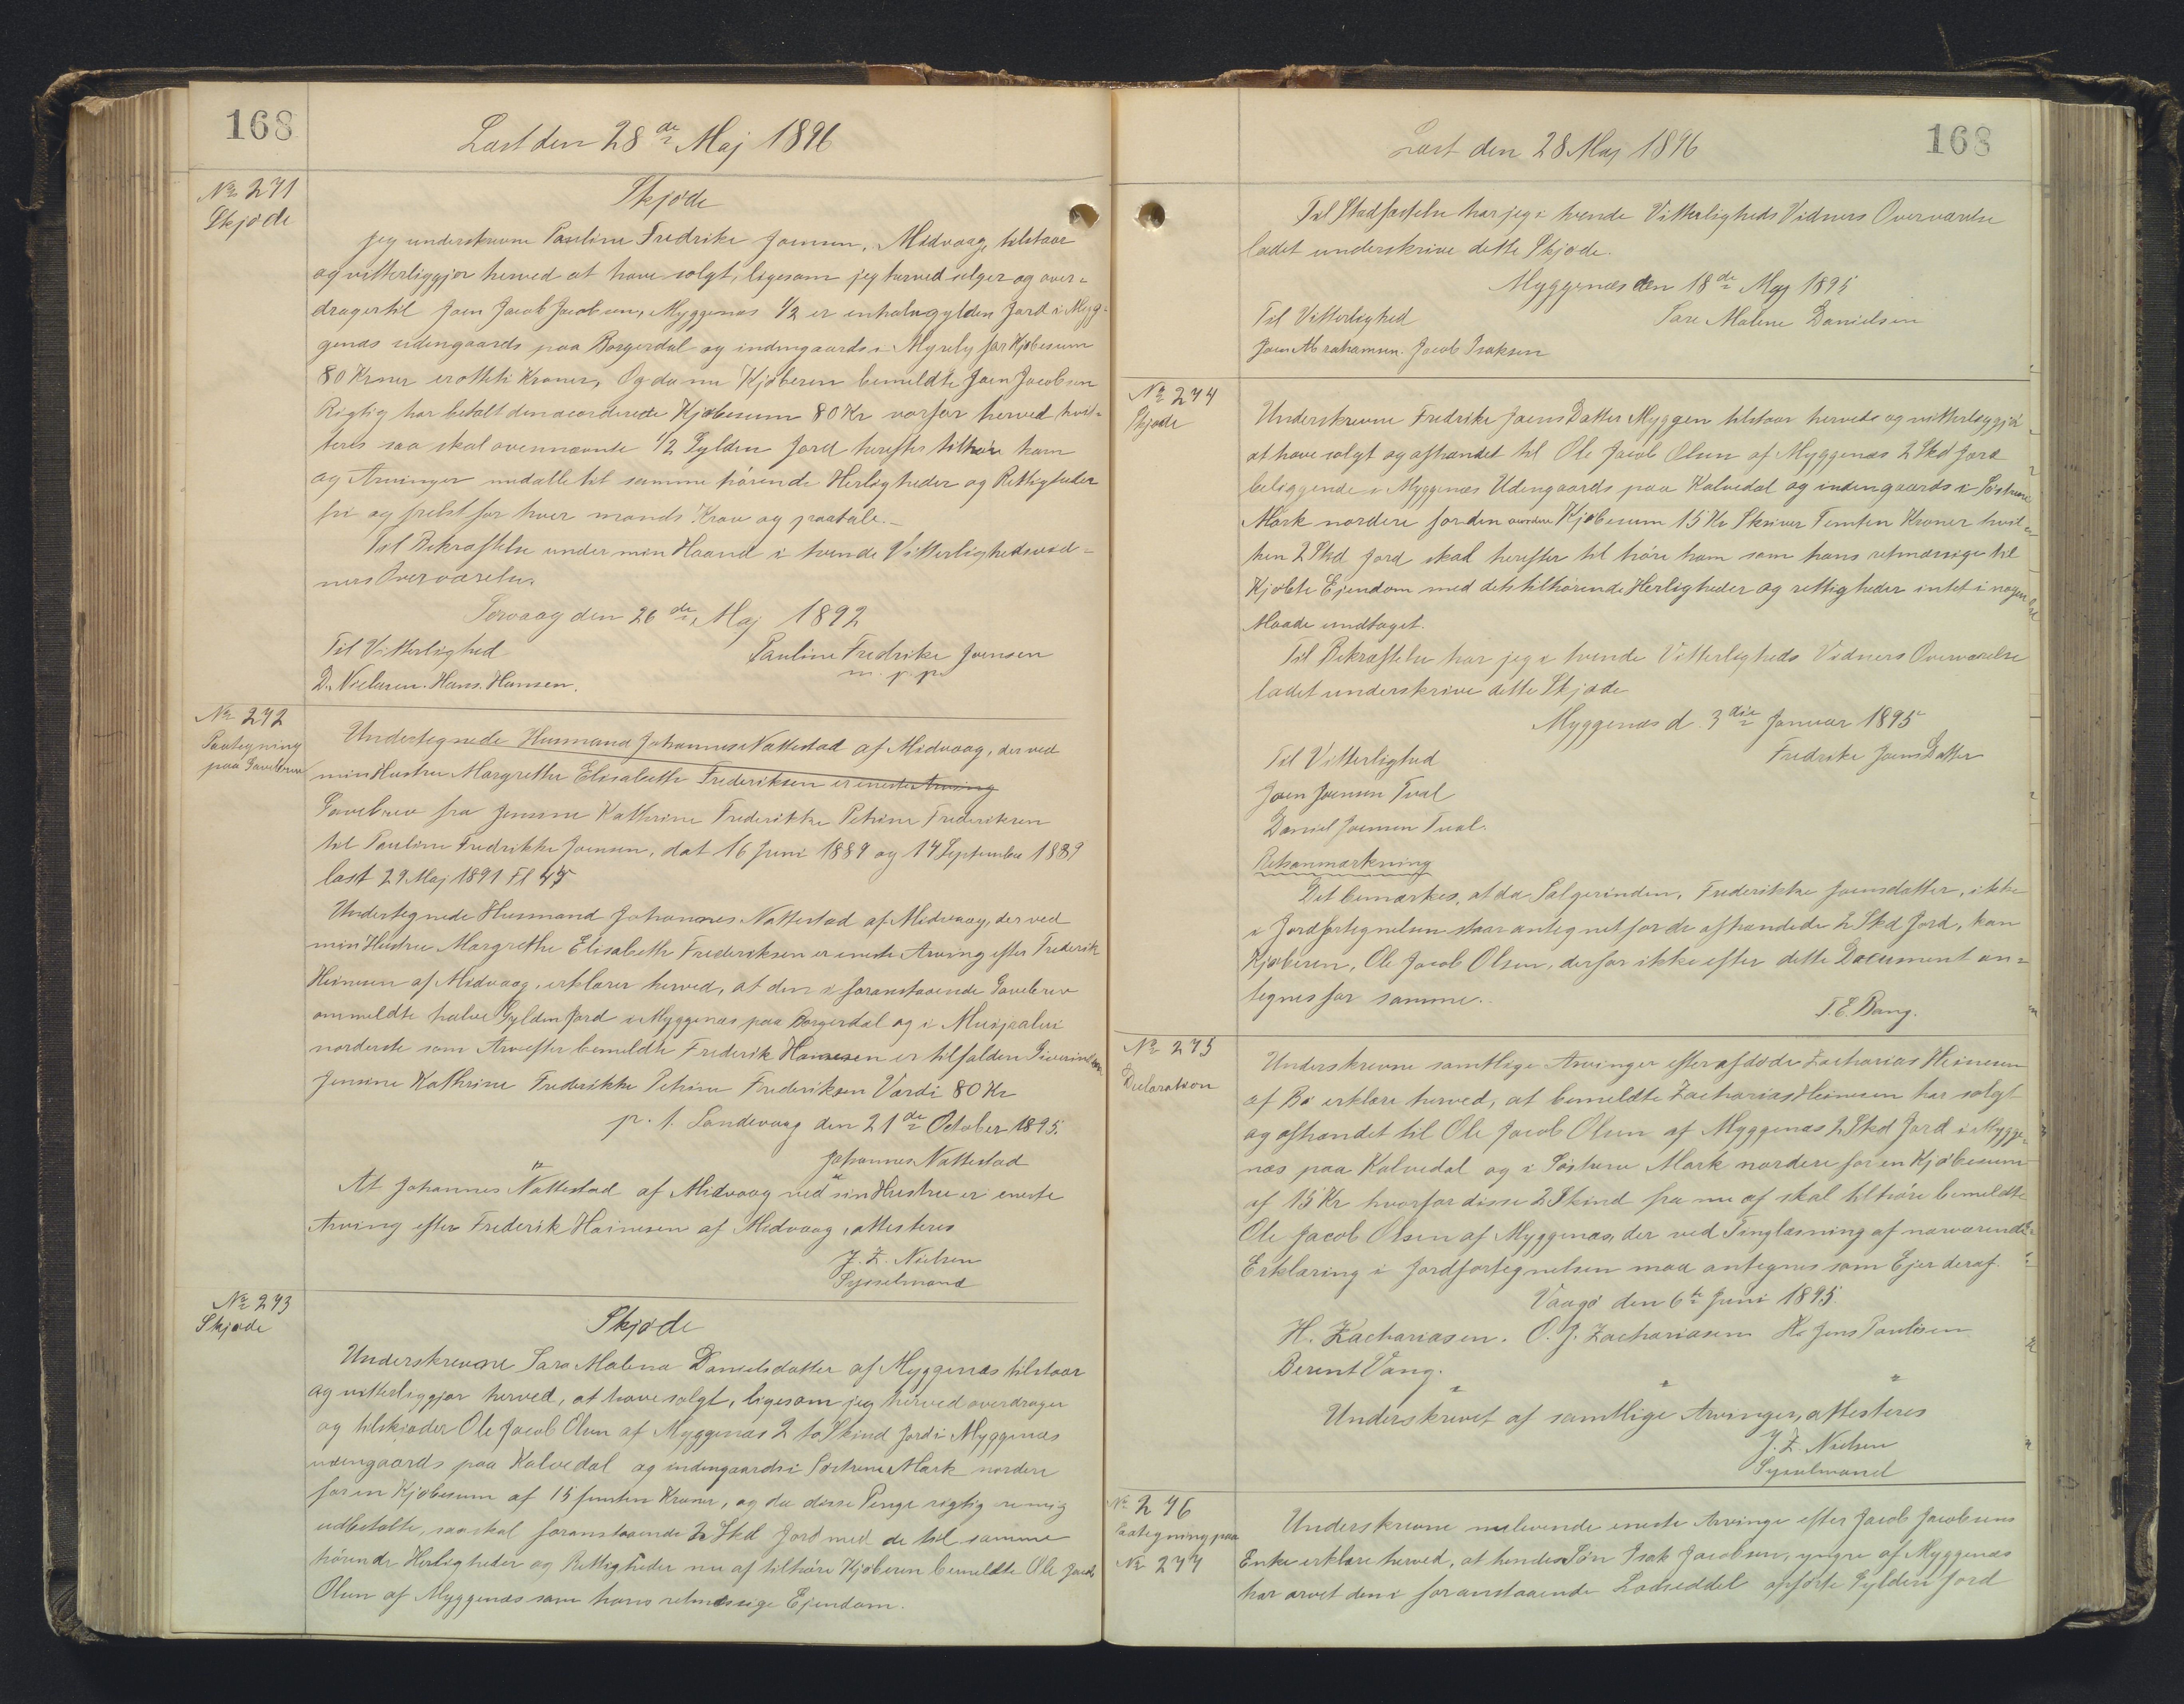 168
Læst den 28de Maj 1896
No 271
Skjøde
Skjøde
Jeg underskrevne Pauline Fredrike Joensen, Midvaag, tilstaar
og vitterliggjør herved at have solgt, ligesom jeg herved selger og over=
drager til Joen Jacob Jacobsen, Myggenæs 1/2 er en halv gylden Jord i Mygg=
genæs udengaards paa Borgerdal og indengaards i Myrely for Kjøbesum
80 Kroner er otteti Kroner, Og da nu Kjøberen bemeldte Joen Jacobsen
Rigtig har betalt den accorderede Kjøbesum 80 Kr vorfor herved kvit=
teres saa skal ovennævnte 1/2 Gylden Jord herefter tilhøre ham
og Arvinger med alle til samme hørende Herligheder og Rettigheder
fri og frelst for hver mands Krav og paatale.
Til Bekræftelse under min Haand i tvende Vitterlighedsvid=
ners Overværelse.
Sorvaag den 26de Maj 1892
Til Vitterlighed
Pauline Fredrike Joensen
m. p. p.
D. Nielasen. Hans. Hansen.
No 272
Paategning
paa Gavebrev
Undertegnede Husmand Johannes Nattestad af Midvaag, der ved
min Hustru Margrethe Elisabeth Frederiksen er eneste Arving
Gavebrev fra Jensine Kathrine Frederikke Petrine Frederiksen
til Pauline Fredrikke Joensen, dat 16 Juni 1889 og 14 September 1889
læst 29 Maj 1891 Fl 47
Undertegnede Husmand Johannes Nattestad af Midvaag, der ved
min Hustru Margrethe Elisabeth Frederiksen er eneste Arving efter Frederik
Heinesen af Midvaag, erklærer herved, at den i foranstaaende Gavebrev
ommeldte halve Gylden Jord i Myggenæs paa Borgerdal og i
norderste som Arv efter bemeldte Frederik Hainesen er tilfalden Giverinden
Jensine Kathrine Frederikke Petrine Frederiksen Værdi 80 Kr
p. t. Sandevaag den 21de October 1895.
Johannes Nattestad
At Johannes Nattestad af Midvaag ved sin Hustru er eneste
Arving efter Frederik Hainesen af Midvaag, attesteres
J. Z. Nielsen
Sysselmand
No 273
Skjøde
Skjøde
Underskrevne Sara Malena Danielsdatter af Myggenæs tilstaar
og vitterliggjør herved, at have solgt, ligesom jeg herved overdrager
og tilskjøder Ole Jacob Olsen af Myggenæs 2 to Skind Jord i Myggenæs
udengaards paa Kalvedal og indengaards i Sostrene Mark nordere
for en Kjøbesum af 15 femten Kroner, og da disse Penge rigtig er mig
udbetalte, saa skal foranstaaende 2 Skd Jord med de til samme
hørende Herligheder og Rettigheder nu af tilhøre Kjøberen bemeldte Ole Jacob
Olsen af Myggenæs som hans retmæssige Ejendom.
Læst den 28 Maj 1896
168
Til Stadfæstelse har jeg i tvende Vitterligheds Vidners Overværelse
ladet underskrive dette Skjøde.
Myggenæs den 18de Maj 1895
Til Vitterlighed
Sare Malene Danielsen
Joen Abrahamsen. Jacob Isaksen
No 274
Skjøde
Underskrevne Fredrike Joens Datter Myggen tilstaar herved og vitterliggjø
at have solgt og afhændet til Ole Jacob Olsen af Myggenæs 2 Skd Jord
beliggende i Myggenæs Udengaards paa Kalvedal og indengaards i Søstrene
Mark nordere for den Kjøbesum 15 Kr Skriver Femten Kroner hvil=
ken 2 Skd Jord skal herefter til høre ham som hans retmæssige til
Kjøbte Ejendom med dets tilhørende Herligheder og rettigheder intet i nogen
Maade undtaget.
Til Bekræftelse har jeg i tvende Vitterligheds Vidners Overværelse
ladet underskrive dette Skjøde
Myggenæs d. 3die Januar 1895
Til Vitterlighed
Fredrike Joens Datter
Joen Joensen Tval
Daniel Joensen Tval.
Retsanmærkning
Det bemærkes, at da Sælgerinden, Frederikke Joensdatter, ikke
i Jordfortegnelsen staar antegnet for de afhændede 2 Skd Jord, kan
Kjøberen, Ole Jacob Olsen, derfor ikke efter dette Document an=
tegnes for samme.
T. E. Bang.
No 275
Declaration
Underskrevne samtlige Arvinger efter afdøde Zacharias Heinesen
af Bø erklære herved, at bemeldte Zacharias Heinesen har solgt
og afhændet til Ole Jacob Olsen af Myggenæs 2 Skd Jord i Mygge=
næs paa Kalvedal og i Søstrene Mark nordere for en Kjøbesum
af 15 Kr hvorfor disse 2 Skind fra nu af skal tilhøre bemeldte
Ole Jacob Olsen af Myggenæs, der ved Tinglæsning af nærværende
Erklæring i Jordfortegnelsen maa antegnes som Ejer deraf.
Vaagø den 6te Juni 1895.
H. Zachariasen. O. J. Zachariasen H. Jens Paulisen
Berent Vang.
Underskrevet af samtlige Arvinger, attesteres
J. Z. Nielsen
Sysselmand
No 276
Paategning paa
No 277
Underskrevne nulevende eneste Arvinge efter Jacob Jacobsens
Enke erklære herved, at hendes Søn Isak Jacobsen, yngre af Myggenæs
har arvet den i foranstaaende Lodseddel opførte Gylden Jord